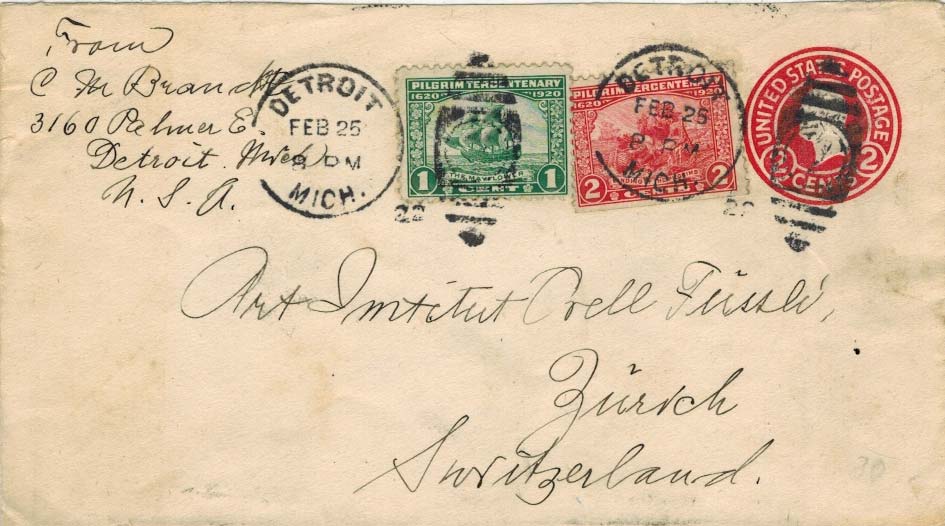 From
C M Brandt
3160 Palmer E.
Detroit Mich
U. S. A.
DETROIT
FEB 25
8 PM
MICH.
22
PILGRIM TERCENTENARY
1620 1920
THE MAYFLOWER
1 CENT 1
PILGRIM TERCENTENARY
1620 1920
2 2
DETROIT
FEB 25
8 PM
MICH.
22
UNITED STATES POSTAGE
2 CENTS 2
Art Institut Orell Füssli,
Zürich
Switzerland.
30